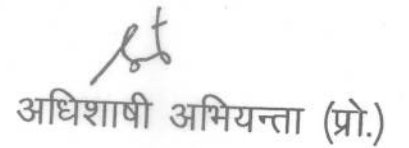 अधिशाषी अभियन्ता (प्रो.)